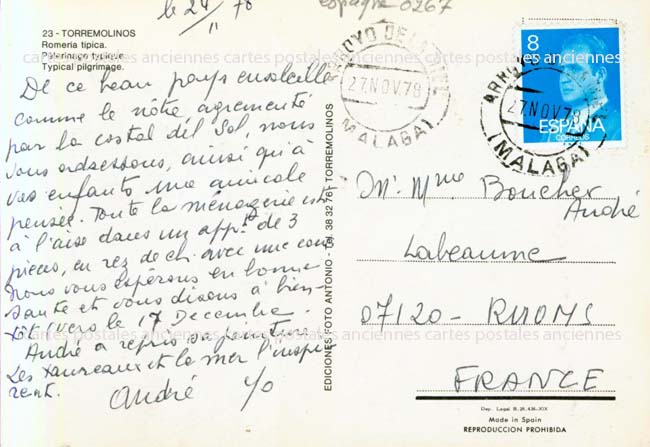 le 24/11 78
espagne 0267
23 - TORREMOLINOS
Romeria típica.
Pélerinage typique.
Typical pilgrimage.
De ce beau pays ensoleillé
comme le nôtre agrémenté
par la costal del Sol, nous
vous adressons, ainsi qu'à
vos enfants une amicale
pensée. Toute la ménagerie est
à l'aise dans un appt de 3
pièces, en rez de ch. avec une cour
Nous vous espérons en bonne
santé et vous disons à bien-
tôt (vers le 17 Decembre.
André a repris sa peinture
Les taureaux et la mer l'inspi-
rent.
André Yo
EDICIONES FOTO ANTONIO - Tel. 38 32 76 - TORREMOLINOS
ARROYO DE LA MIEL
27 NOV. 78
(MALAGA)
ARROYO
27 NOV. 78
(MALAGA)
8
PTAS
ESPAÑA
CORREOS
Mr Mme Boucher
André
Labeaume
07120 - RUOMS
FRANCE
Dep. Legal B. 26.436-XIX
Made in Spain
REPRODUCCION PROHIBIDA
cartes postales anciennes cartes postales anciennes
anciennes cartes postales anciennes